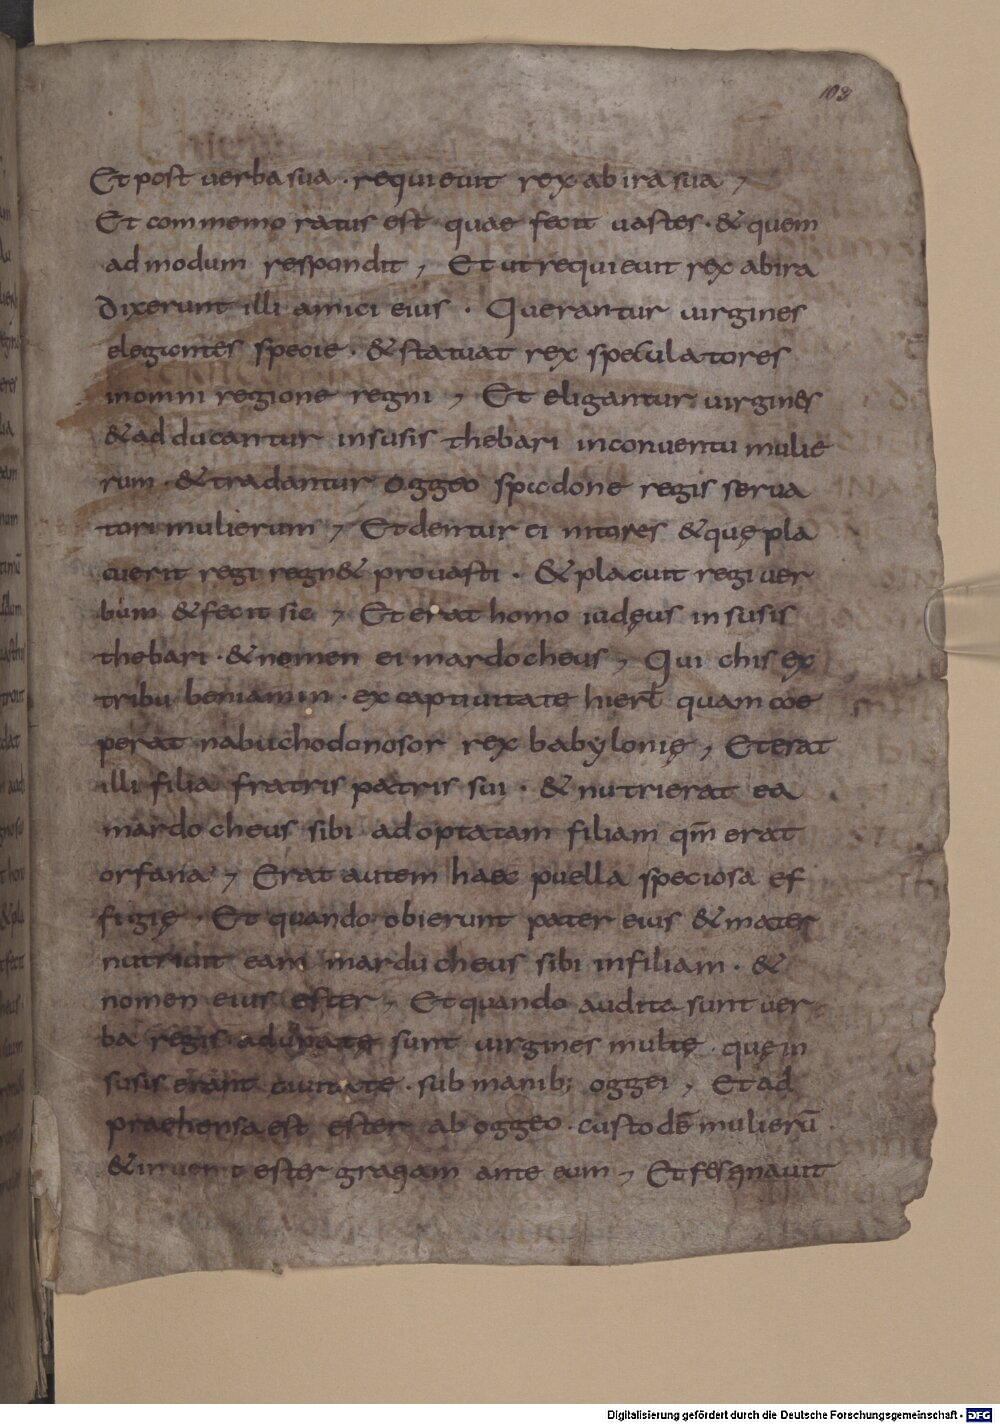 103
Et post verba sua · requievit rex ab ira sua ,
Et commemoratus est quae fecit vastes · & quem
ad modum respondit , Et ut requievit rex ab ira
dixerunt illi amici eius · Querantur virgines
elegiontes specie · & statuat rex speculatores
in omni regione regni , Et eligantur virgines
& ad ducantur in susis thebari in conventu mulie
rum · & tradantur oggeo spicdone regis serva
tori mulierum , Et dentur ei nitores & quę pla
cuerit regi regn& pro vasti · & placuit regi ver
bum & fecit sic , Et erat homo iudęus in susis
thebari · & nomen ei mardocheus , Qui chis ex
tribu beniamin · ex captivitate hierl quam coe
perat nabuchodonosor rex babylonię , Et erat
illi filia fratris patris sui · & nutrierat ea
mardocheus sibi adoptatam filiam qm̄ erat
orfana , Erat autem haec puella speciosa ef
figię · Et quando obierunt pater eius & mater
nutrivit eam marducheus sibi in filiam · &
nomen eius ester , Et quando audita sunt ver
ba regis adunatę sunt virgines multę · quę in
susis erant civitate · sub manib; oggei , Et ad
praehensa est ester ab oggeo · custodē mulierū ·
& invenit ester gratiam ante eum , Et festinavit
Digitalisierung gefördert durch die Deutsche Forschungsgemeinschaft - DFG